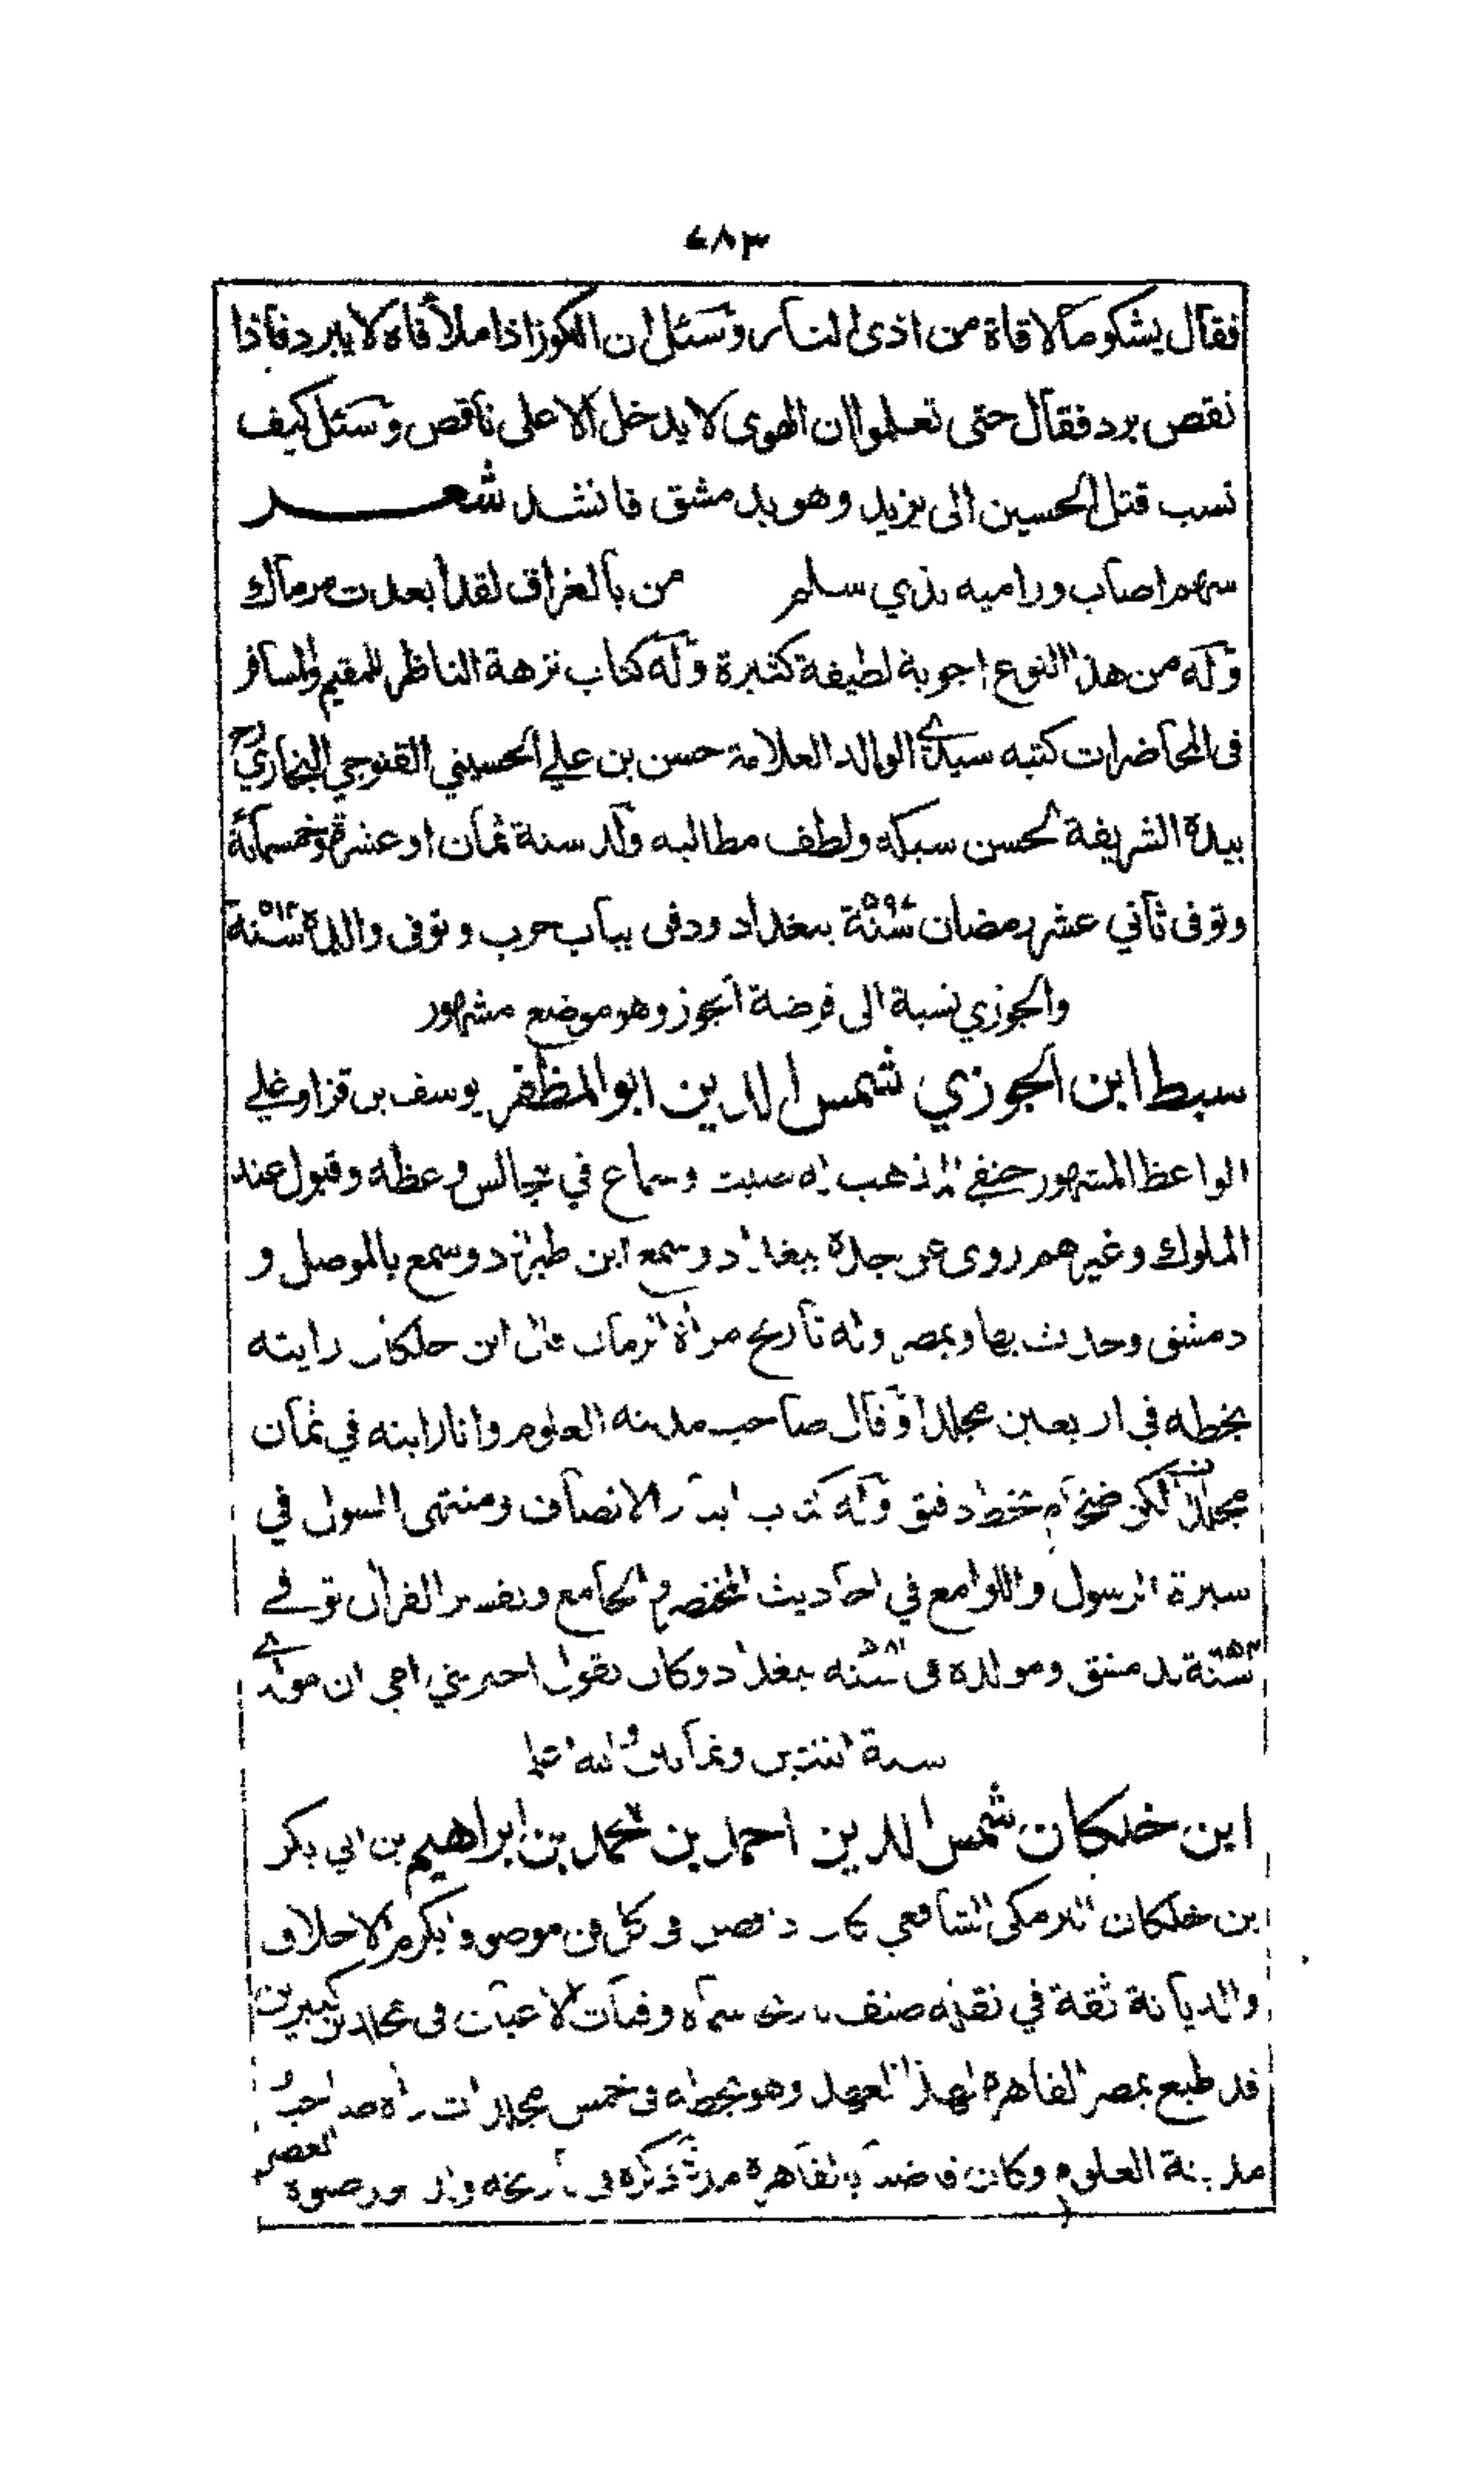 ٧٨٣
فقال يشكو ما لاقاة من اذى النار وسئل ان الكوز اذا ملأ قاه لا يبرد فاذا
نقص برد فقال حتى تعلموا ان الهوى لا يدخل الا على ناقص وسئل كيف
نسب قتل الحسين الى يزيد وهو بدمشق فانشد شعر
سهم اصاب وراميه بذي سلم من بالعراق لقد ابعدت مرماك
وله من هذا النوع اجوبة لطيفة كثيرة وله كتاب نزهة الناظر للمقيم والمسافر
فى المحاضرات كتبه سيدي الوالد العلامة حسن بن علي الحسيني القنوجي البخاري رح
بيدة الشريفة لحسن سبكه ولطف مطالبه ولد سنة ثمان او عشرة وخمسمائة
وتوفى ثاني عشر رمضان سنة ٥٩٧ ببغداد ودفن بباب حرب وتوفى والده سنة ٥١٤
والجوزي نسبة الى فرضة الجوز وهو موضع مشهور
سبط ابن الجوزي شمس الدين ابو المظفر يوسف بن قزاوغلي
الواعظ المشهور حنفي المذهب له صيت وسماع في مجالس وعظه وقبول عند
الملوك وغيرهم روى عن جدة ببغداد وسمع ابن طبرزد وسمع بالموصل و
دمشق وحدث بها وبمصر وله تاريخ مرأة الزمان قال ابن خلكان رايته
بخطه في اربعين مجلدا وقال صاحب مدينة العلوم وانا رايته في ثمان
مجلدات لكن ضخام بخط دقيق وله كتاب ايثار الانصاف ومنتهى السول في
سيرة الرسول واللوامع في احاديث المختصر والجامع وتفسير القرأن توفي
سنة بدمشق ومولده فى سنة ٥٨١ ببغداد وكان يقول اخبرتني امي ان مولدي
سنة اثنتين وثمانين والله اعلم
ابن خلكان شمس الدين احمد بن محمد بن ابراهيم بن ابي بكر
بن خلكان البرمكي الشافعي كان ذا فضل فى كل فن موصوفا بكرم الاخلاق
والديانة ثقة في نقله صنف تاريخا سماه وفيات الاعيان فى مجلدين كبيرين
قد طبع بمصر القاهرة لهذا العهد وهو بخطه فى خمس مجلدات راه صاحب
مدينة العلوم وكان قاضيا بالقاهرة مدة ذكره فى تاريخه وله